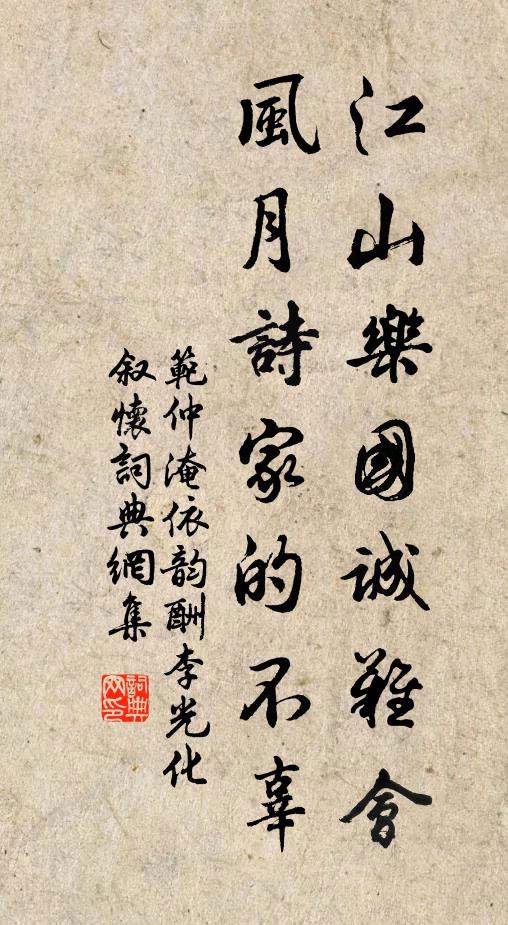 江山樂國誠難會
風月詩家的不辜
範仲淹依韵酬李光化
叙懷詞典網集
詞典
网印